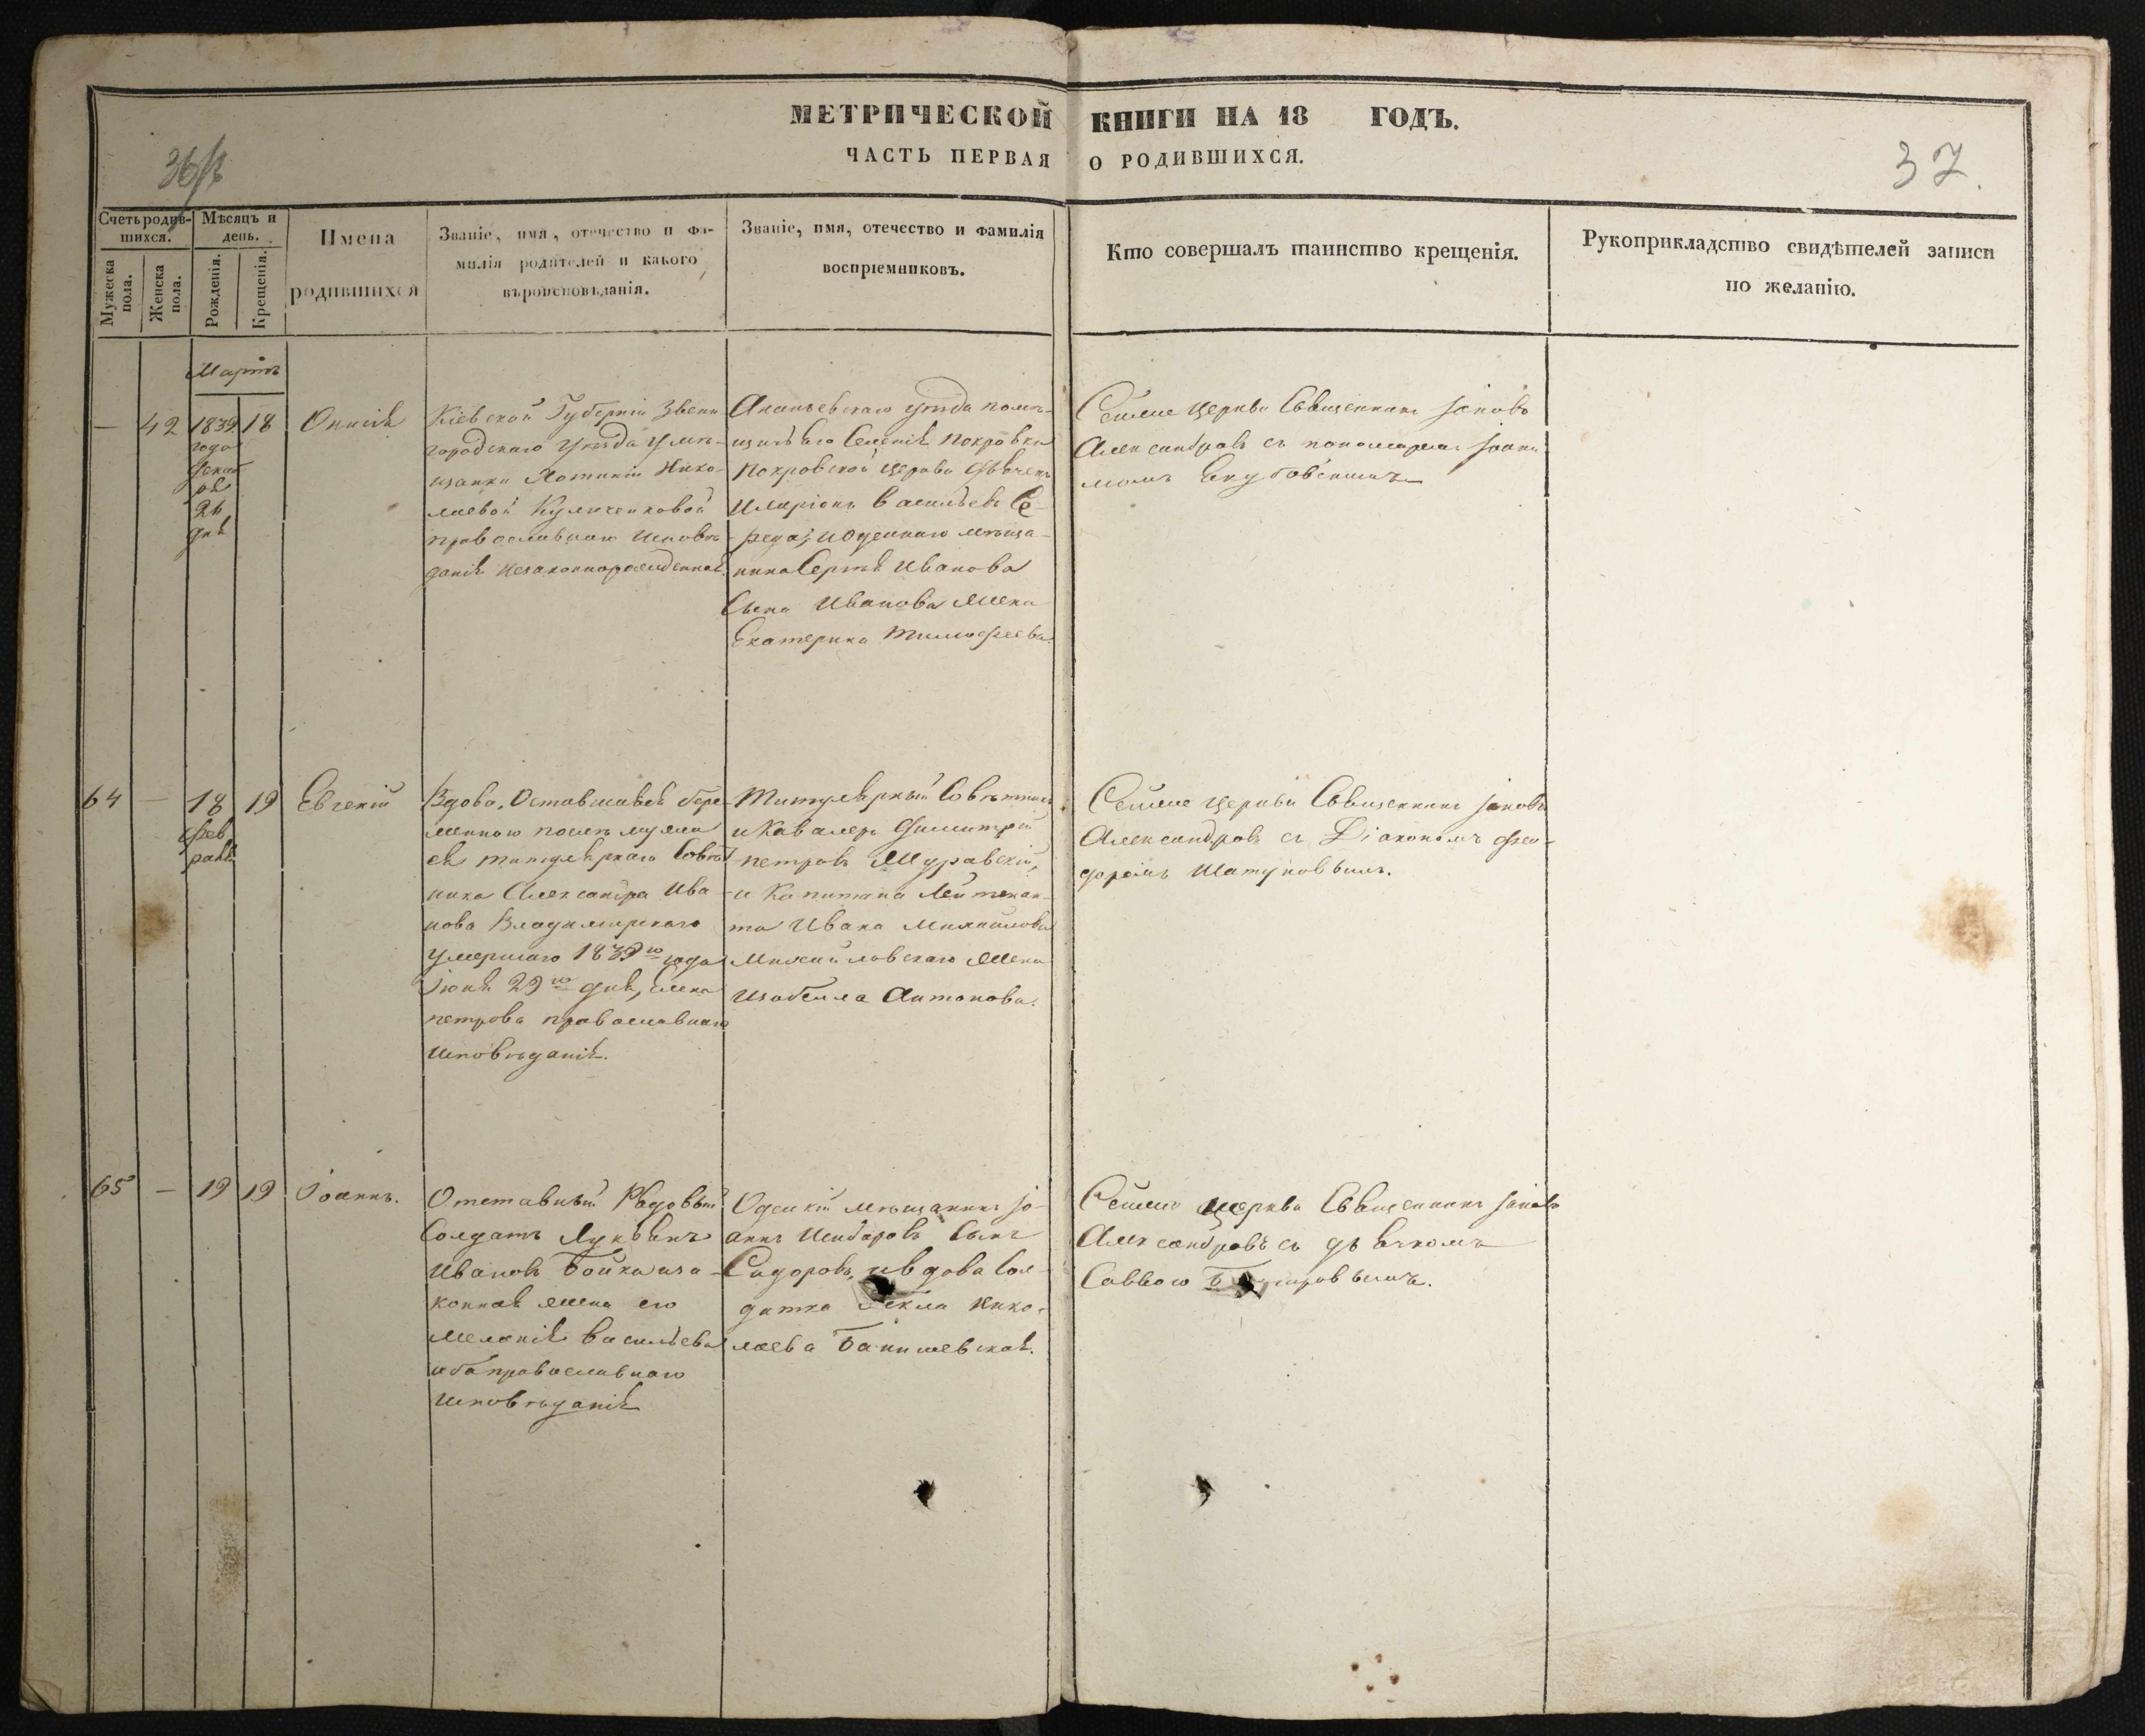 МЕТРИЧЕСКОЙ КНИГИ НА 18 ГОДЪ.
ЧАСТЬ ПЕРВАЯ О РОДИВШИХСЯ.
37.
Счетъ родив-
шихся.
Мужеска
пола.
Женска
пола.
Мѣсяцъ и
день.
Рожденія.
Крещенія.
Имена
родившихся
Званіе, имя, отечество и фа-
милія родителей и какого
вѣроисповѣданія.
Званіе, имя, отечество и фамилія
воспріемниковъ.
Кто совершалъ таинство крещенія.
Рукоприкладство свидѣтелей записи
по желанію.
Мартъ
—
42
1839
года
дня
18
Кіевской Губерніи Звени
городскаго уѣзда
щанки Нико-
лаевой
православнаго исповѣ-
данія незаконнорожденная
Ананьевскаго уѣзда помѣ-
щичьяго Селенія Покровки
Покровской Церкви
Иларіонъ Васильевъ Се-
реда; и Одесскаго мѣща-
нина Сергѣя Иванова
Сына Иванова жена
Екатерина Тимофеева.
Сеяже Церкви Священникъ Іаковъ
Александровъ съ пономаремъ Іоаки
момъ
64
—
18
фев
раля
19
Евгений
Вдова, Оставшаяся бере-
менною послѣ мужа
ея титулярнаго Совѣт
ника Александра Ива
нова Владимирскаго
умершаго 1839го года
Іюня 29го дня, Елена
петрова православнаго
исповѣданія.
Титулярный Совѣтникъ
и Кавалеръ Димитрій
петровъ Журавскій,
и Капитана Лейтенан-
та Ивана Михайлова
Михайловскаго жена
Изабелла Антонова.
Сеяже Церкви Священникъ Іаковъ
Александровъ съ Діакономъ Фео-
доромъ Шатуновымъ.
65
—
19
19
Іоаннъ.
Отставный Рядовый
Солдатъ Лукьянъ
Ивановъ Бойка и за-
конная жена его
Меланія Васильева
оба православнаго
исповѣданія
Одескій мѣщанинъ Іо-
аннъ Сынъ
Сидоровъ, и вдова Сол-
датка Фекла Нико-
лаева
Сеяже Церкви Священникъ Іаковъ
Александровъ съ дьячкомъ
Саввою